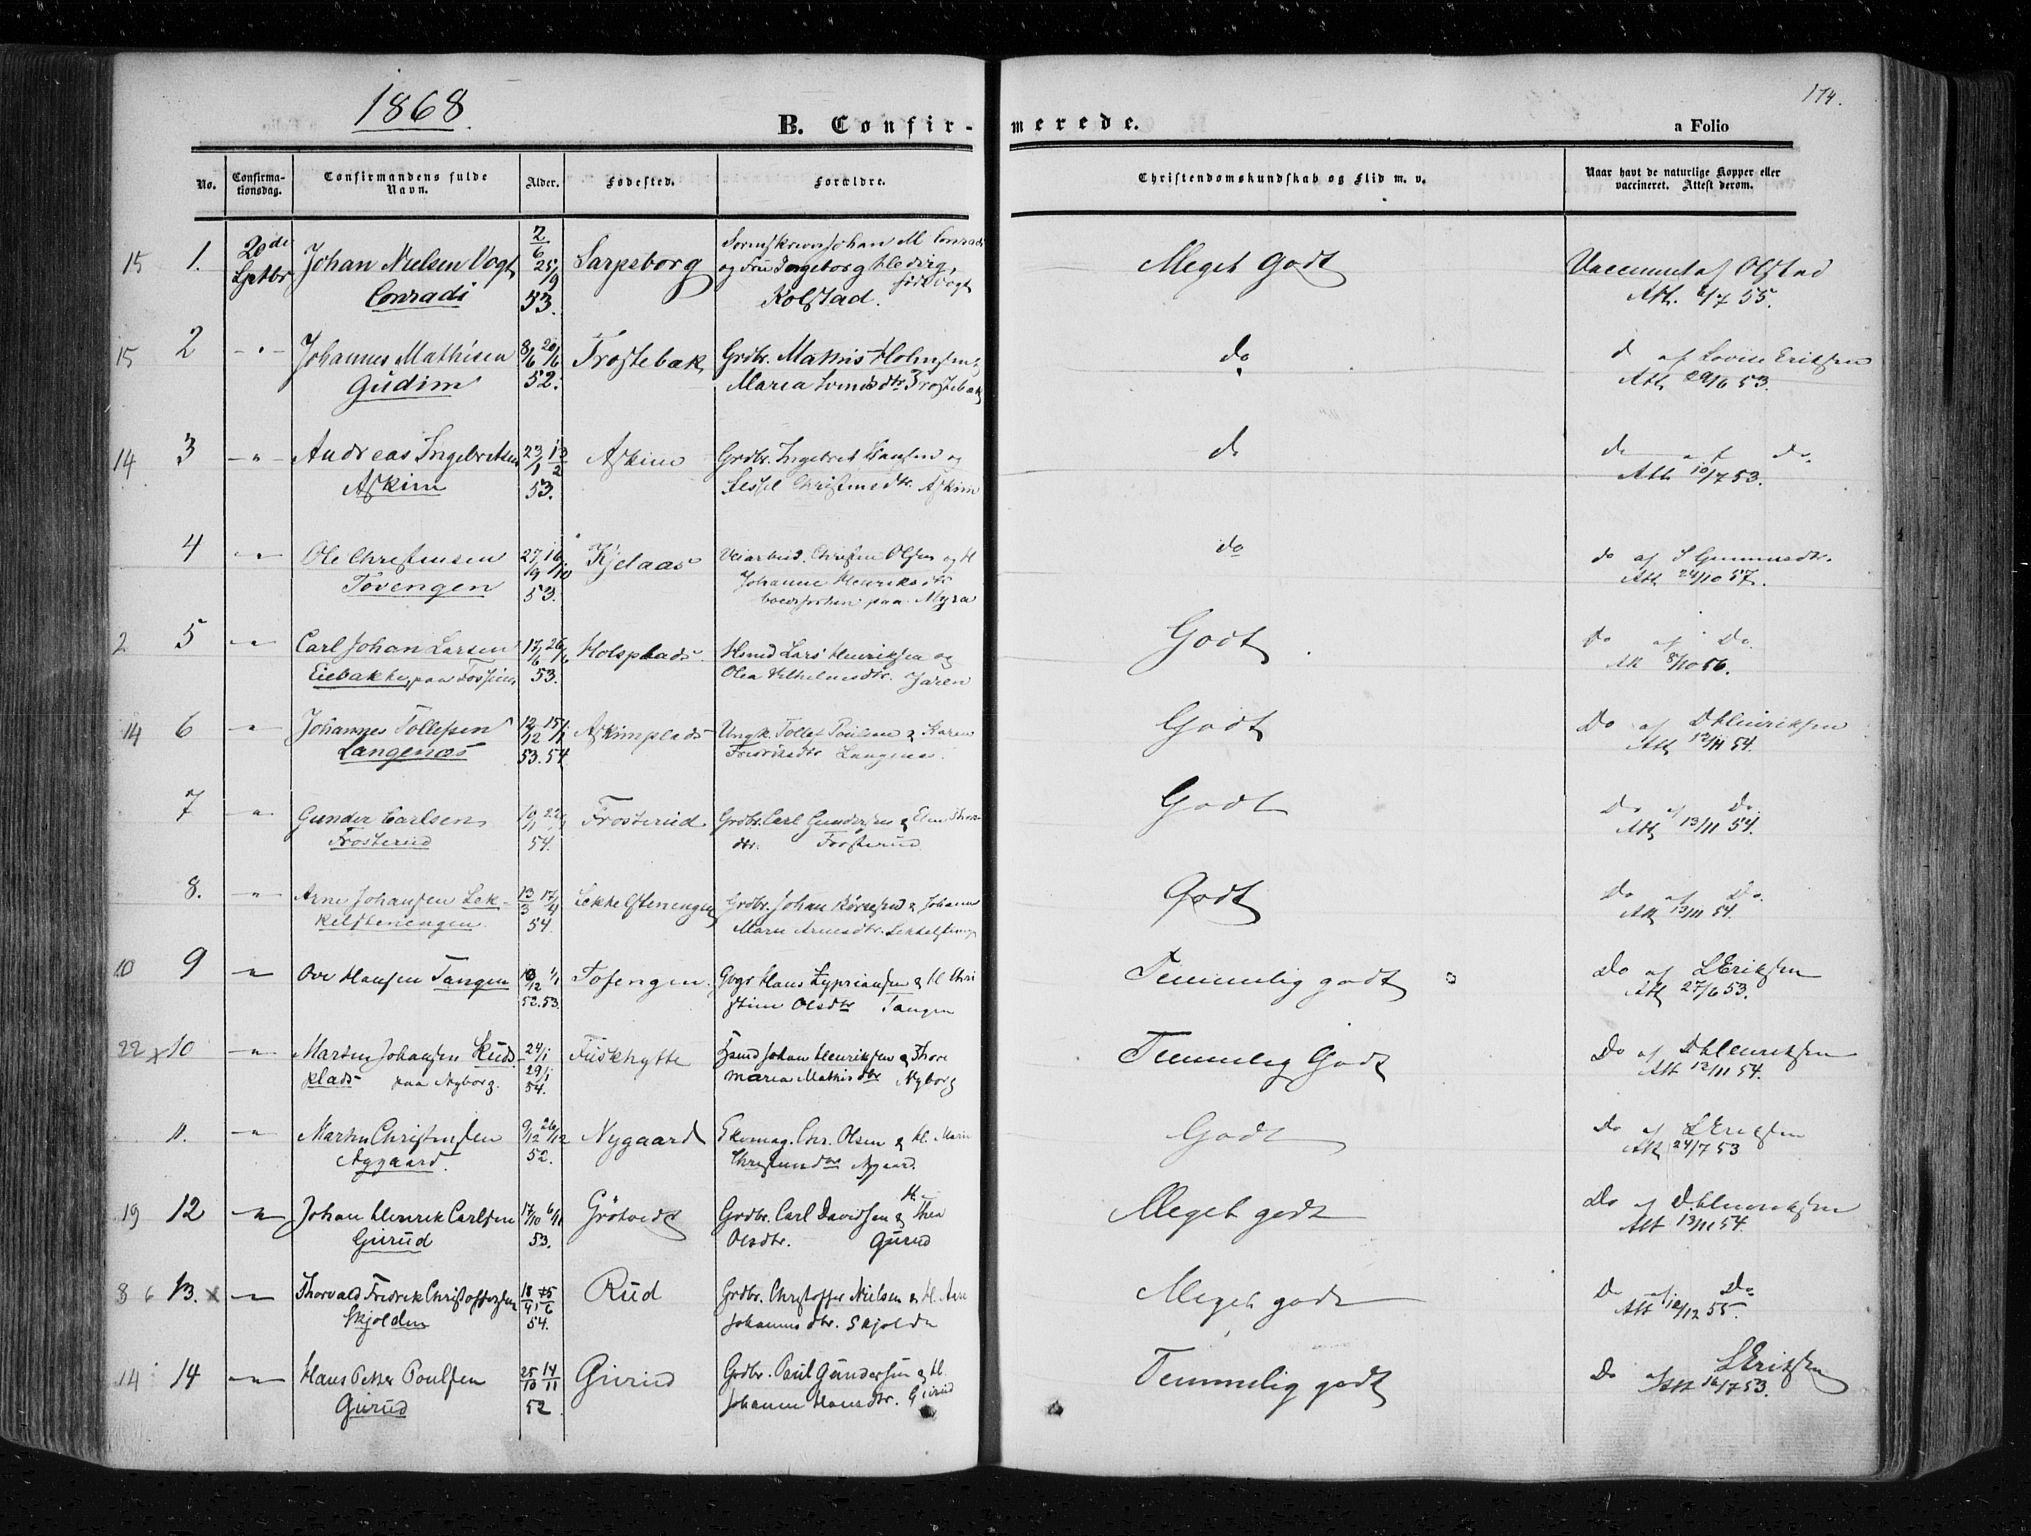 1868.
174.
B. Confirmerede.
a Folio
No.
Confirmationsdag.
Confirmandens fulde Navn.
Alder.
Fødested.
Forældre.
Christendomskundskab og Flid m. v.
Naar havt de naturlige Kopper eller vaccineret. Attest derom.
15 1. 20de Septbr Johan Nielsen Vogt 2/6 25/9 Sarpsborg Johan M Conradi Meget Godt Vaccineret af Olstad
Conradi 53. og Fru Ingeborg Hedvig, født Vogt Att. 6/7 55.
Kolstad.
15 2 Johannes Mathisen 8/6 20/6 Frostebæk Grdbr. Mathis Holmsen do d af Lovise Eriksen
Gudim 52. Maria Svendsdtr Frostebæk Att 29/6 53.
14 3 Andreas Ingebretsen 23/1 13/2 Askim Grdbr. Ingebret Hansen og do do af do.
Askim 53. Sissel Christensdtr. Askim Att 10/7 53.
4 Ole Christensen 27/9 16/10 Kjelaas Christen Olsen og H do do af S Gummesdtr.
Tovengen 53. Johanne Henriksdtr Att 24/10 57.
paa Myra
2 5 Carl Johan Larsen 17/6 26/6 Holsplads Hsmd Lars Henriksen og Godt Do af Do.
Eiebakke, paa Fossum 53. Olea Vilhelmsdtr. Jaren Att 8/10 56.
14 6 Johannes Tollefsen 12/12 15/1 Askimplads Ungk. Tollef Poulsen & Karen Godt Do af D Henriksen
Langenæs 53. 54 Fredriksdtr Langenæs. Att 13/11 54.
7 Gunder Carlsen 10/1 22/1 Frosterud Grdbr. Carl Gundersen & Godt Do af Do
Frosterud 54. dtr. Frosterud Att 13/11 54.
8. Arne Johansen Lek- 13/3 17/4 Lekkelstenengen Grdbr. Johan & Johanne Godt Do af Do.
kelstenengen 54. Marie Arnesdtr. Att 13/11 54.
10 9 Ove Hansen Tangen 10/12 1/1 Tofengen. Hans Zypriansen & H Chri Temmelig godt Do af L Eriksen
52. 53. stine Olsdtr Tangen Att 27/6 53.
22 x 10 Martin Johansen Ruds- 24/1 Fuskhytte Johan Henriksen & Thore Temmelig Godt Do af D Henriksen
klads paa Nyborg. 29/1 54. maria Mathisdtr Nyborg Att 13/11 54.
11. Martin Christensen 9/12 26/12 Nygaard Skomag. Chr. Olsen & H. Marie Godt do af L Eriksen
Nygaard. 52. Nygaard. Att 24/7 53
19 12 Johan Henrik Carlsen 17/10 6/11 Grötvedt Grdbr. Carl Davidsen & H. Thea Meget godt Do af D. Henriksen
Gurud 53. Olsdtr. Gurud Att 13/11 54.
8 6 13. x Thorvald Fredrik Christoffersen 18/4 25/6 Rud Grdbr. Christoffer Nielsen & H. Meget godt Do af Do
Skjolden 54. Johannesdtr. Skjolden Att 12/12 55.
14 14 Hans Petter Poulsen 25/10 14/11 Gurud Grdbr. Paul Gundersen & H. Temmelig godt Do af L Eriksen
Gurud 52 Johanne Hansdtr. Gurud Att 16/7 53.